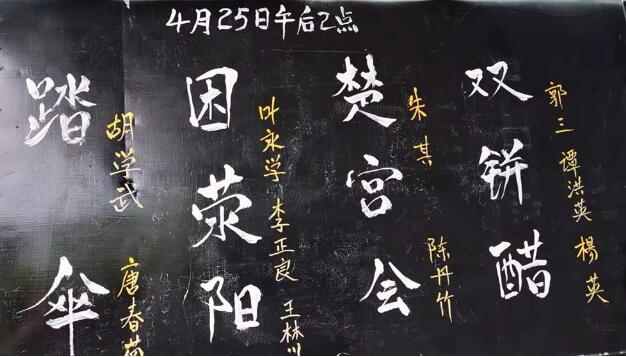 4月25日午后2点
双饼醋
郭三 谭洪英 楊英
楚宫会
朱其
陈丹竹
困荥阳
叶永学 李正良 王林
踏伞
胡学武
唐春